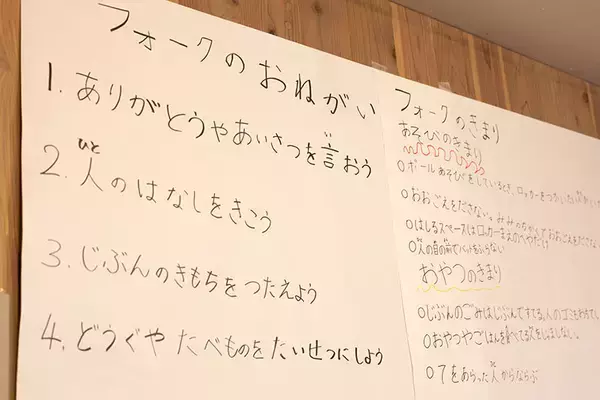 フォークのおねがい
1. ありがとうやあいさつを言おう
2. 人のはなしをきこう
3. じぶんのきもちをつたえよう
4. どうぐや たべものを たいせつにしよう
フォークのきまり
あそびのきまり
○ボールあそびをしているとき、ロッカーをつかいたい
○おおごえをださない。みみのちかくでおおごえをださない
○はしるスペースはロッカーまえのへやだけ
○人の目の前でバットをふらない
おやつのきまり
○じぶんのごみはじぶんですてる。人のゴミも
○おやつやごはんを食べてる
○てをあらった人からならぶ